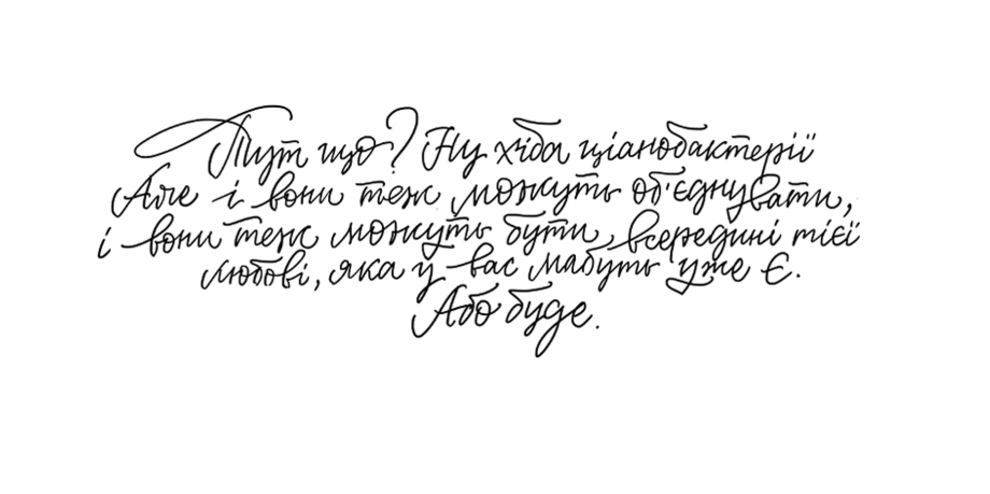 Тут що? Ну хіба ціанобактерії
Але і вони теж можуть об'єднувати,
і вони теж можуть бути, всередині тієї
любові, яка у вас мабуть уже є.
Або буде.